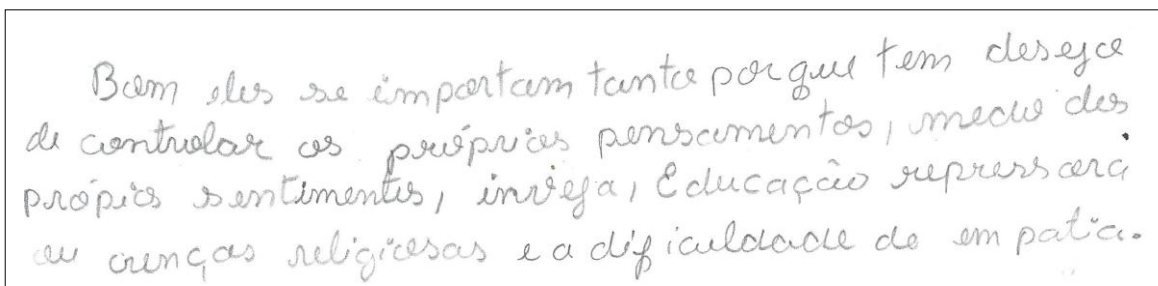 Bom eles se importam tanto porque tem desejo
de controlar os próprios pensamentos, medo dos
própios sentimentos, inveja, Educação repressora
ou crenças religiosas e a dificuldade de empatia.